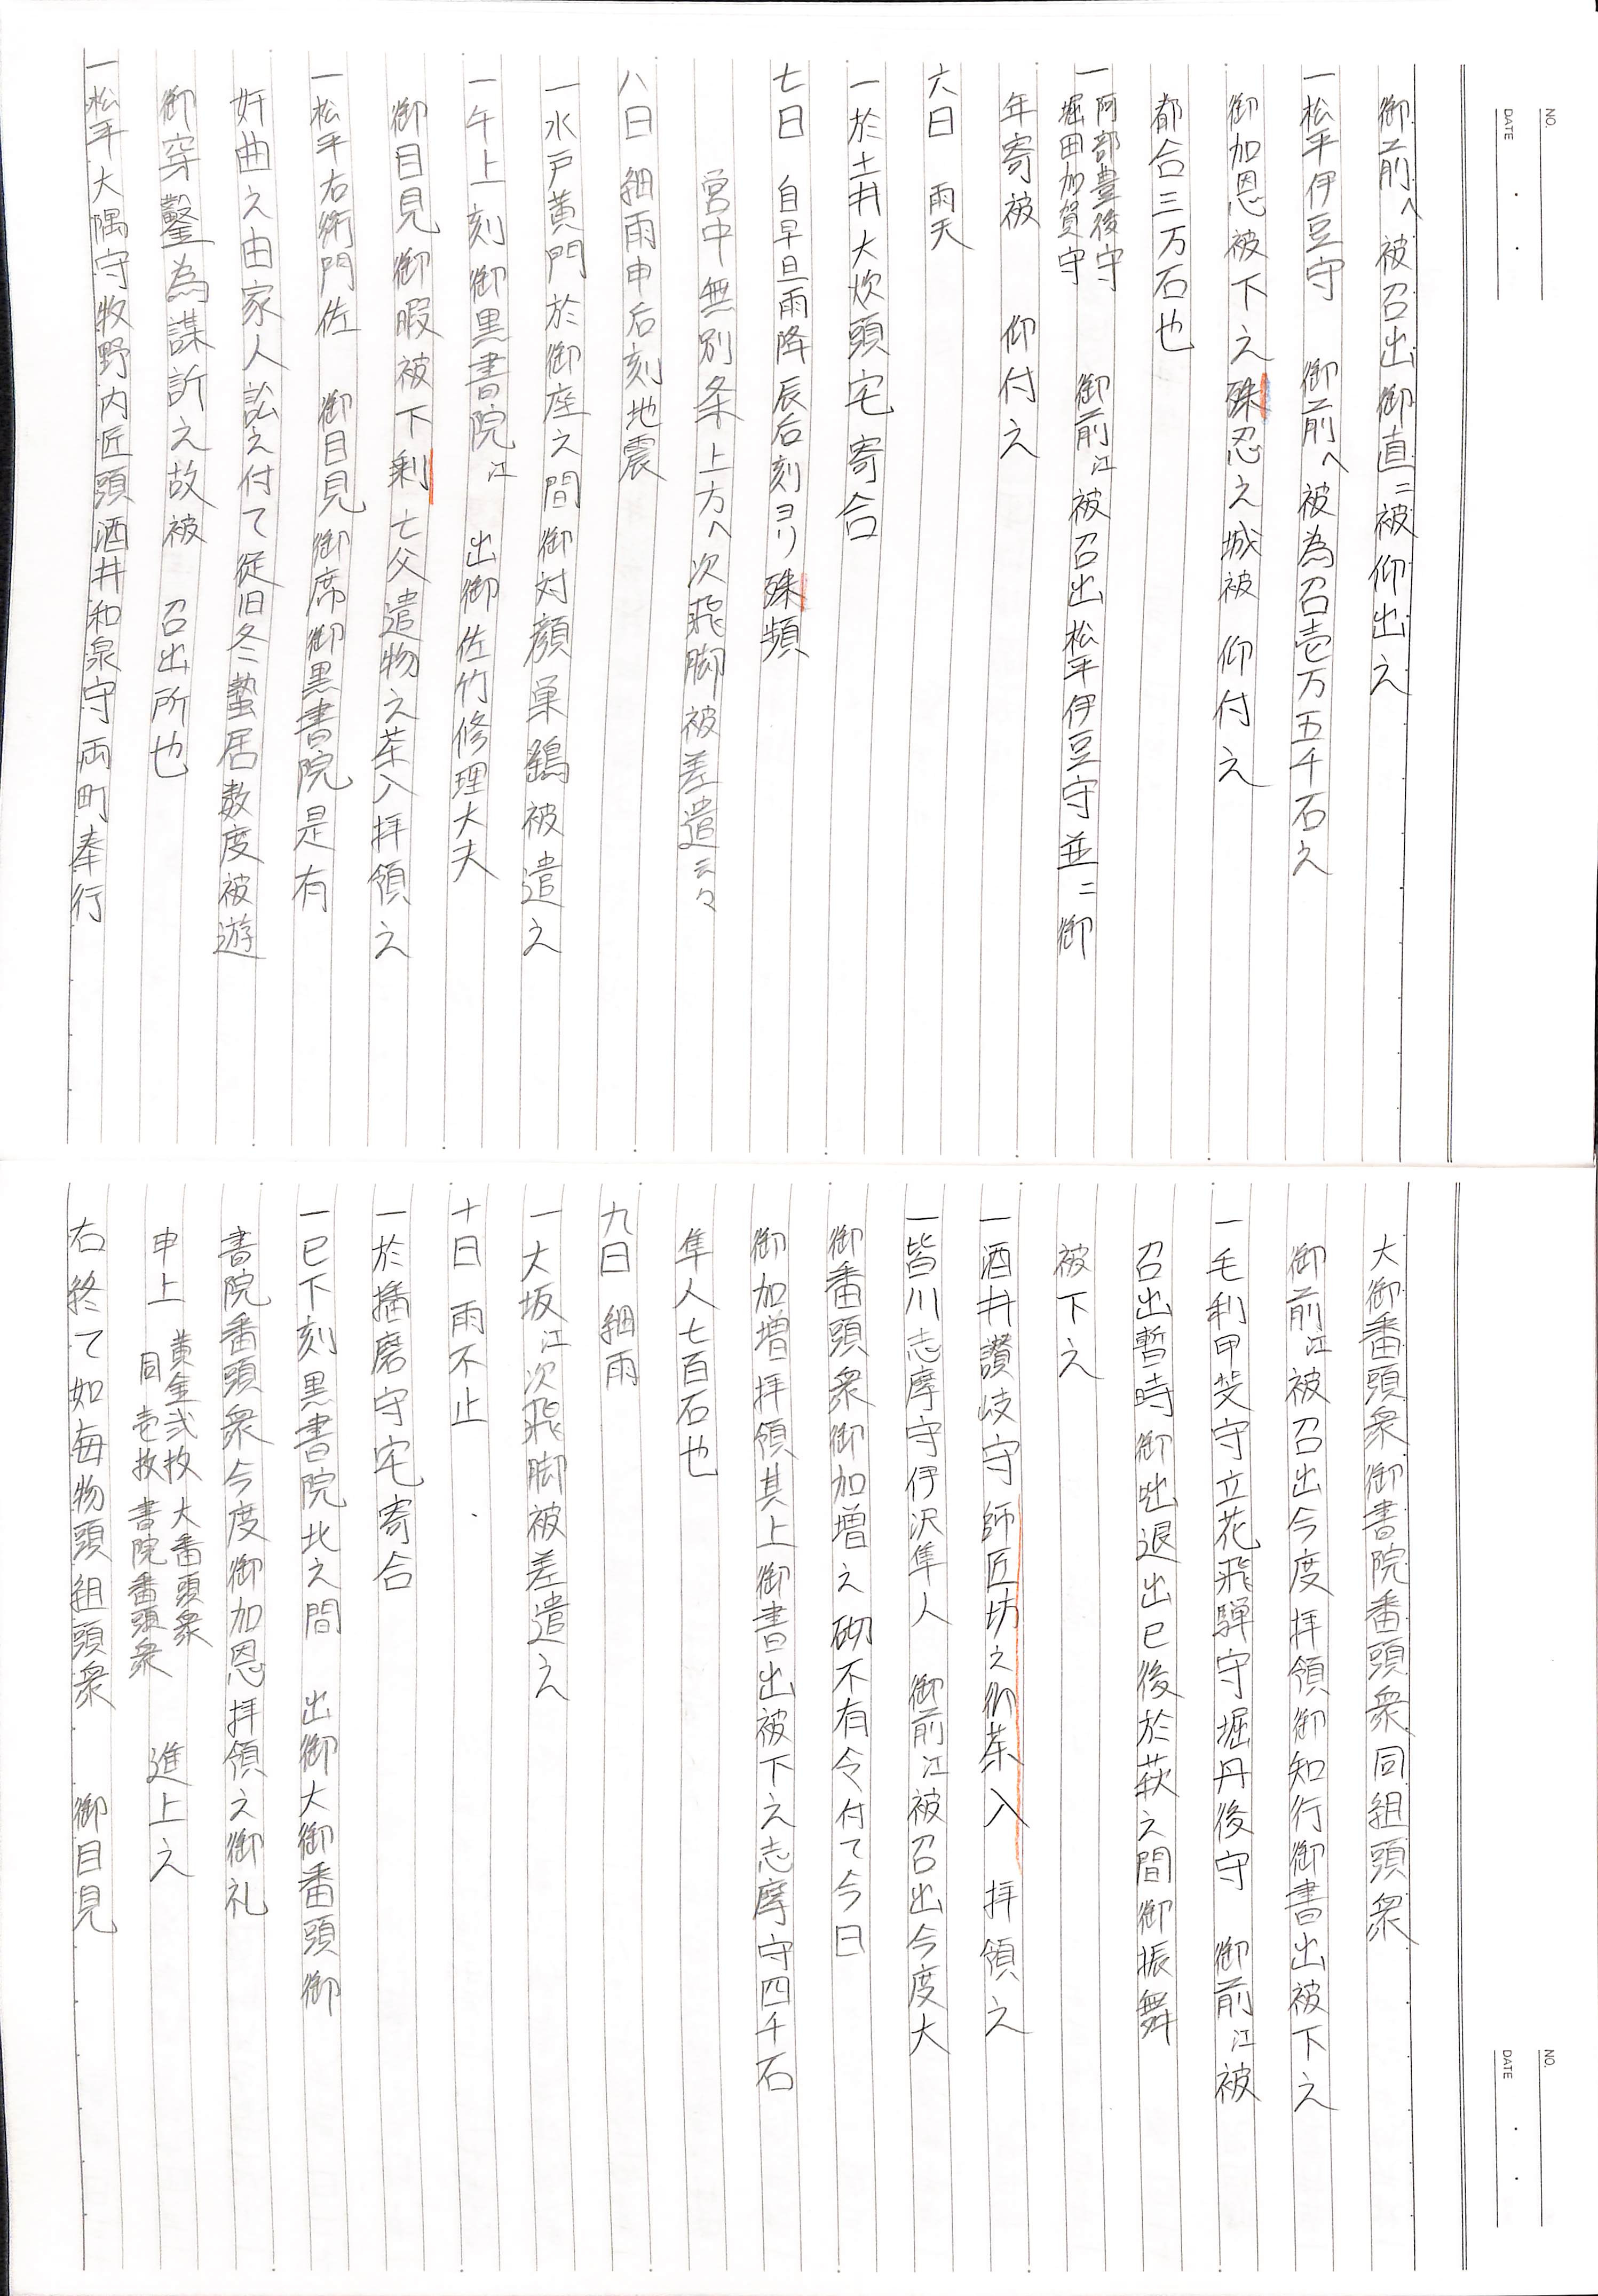 NO.
DATE
御前へ被召出御直ニ被仰出之
一松平伊豆守　御前へ被為召壱万五千石之
御加恩被下之殊忍之城被　仰付之
都合三万石也
一阿部豊後守
堀田加賀守　御前江被召出松平伊豆守並ニ御
年寄被　仰付之
六日　雨天
一於土井大炊頭宅寄合
七日　自早旦雨降辰后刻ヨリ殊頻
宮中無別条上方へ次飛脚被差遣云々
八日　細雨申后刻地震
一水戸黄門於御座之間御対顔巣鷂被遣之
一午上刻御黒書院江　出御佐竹修理大夫
御目見御暇被下剰亡父遣物之茶入拝領之
一松平右衛門佐　御目見御席御黒書院是有
奸曲之由家人訟之付て従旧冬蟄居数度被遊
御穿鑿為謀訴之故被　召出所也
一松平大隅守牧野内匠頭酒井和泉守両町奉行
NO.
DATE
大御番頭衆御書院番頭衆同組頭衆
御前江被召出今度拝領御知行御書出被下之
一毛利甲斐守立花飛騨守堀丹後守　御前江被
召出暫時御咄退出已後於萩之間御振舞
被下之
一酒井讃岐守師匠坊之御茶入　拝領之
一皆川志摩守伊沢隼人　御前江被召出今度大
御番頭衆御加増之砌不有令付て今日
御加増拝領其上御書出被下之志摩守四千石
隼人七百石也
九日　細雨
一大坂江次飛脚被差遣之
十日　雨不止
一於播磨守宅寄合
一巳下刻黒書院北之間　出御大御番頭御
書院番頭衆今度御加恩拝領之御礼
申上　黄金弐枚　大番頭衆
同　壱枚　書院番頭衆　進上之
右終て如毎物頭組頭衆　御目見